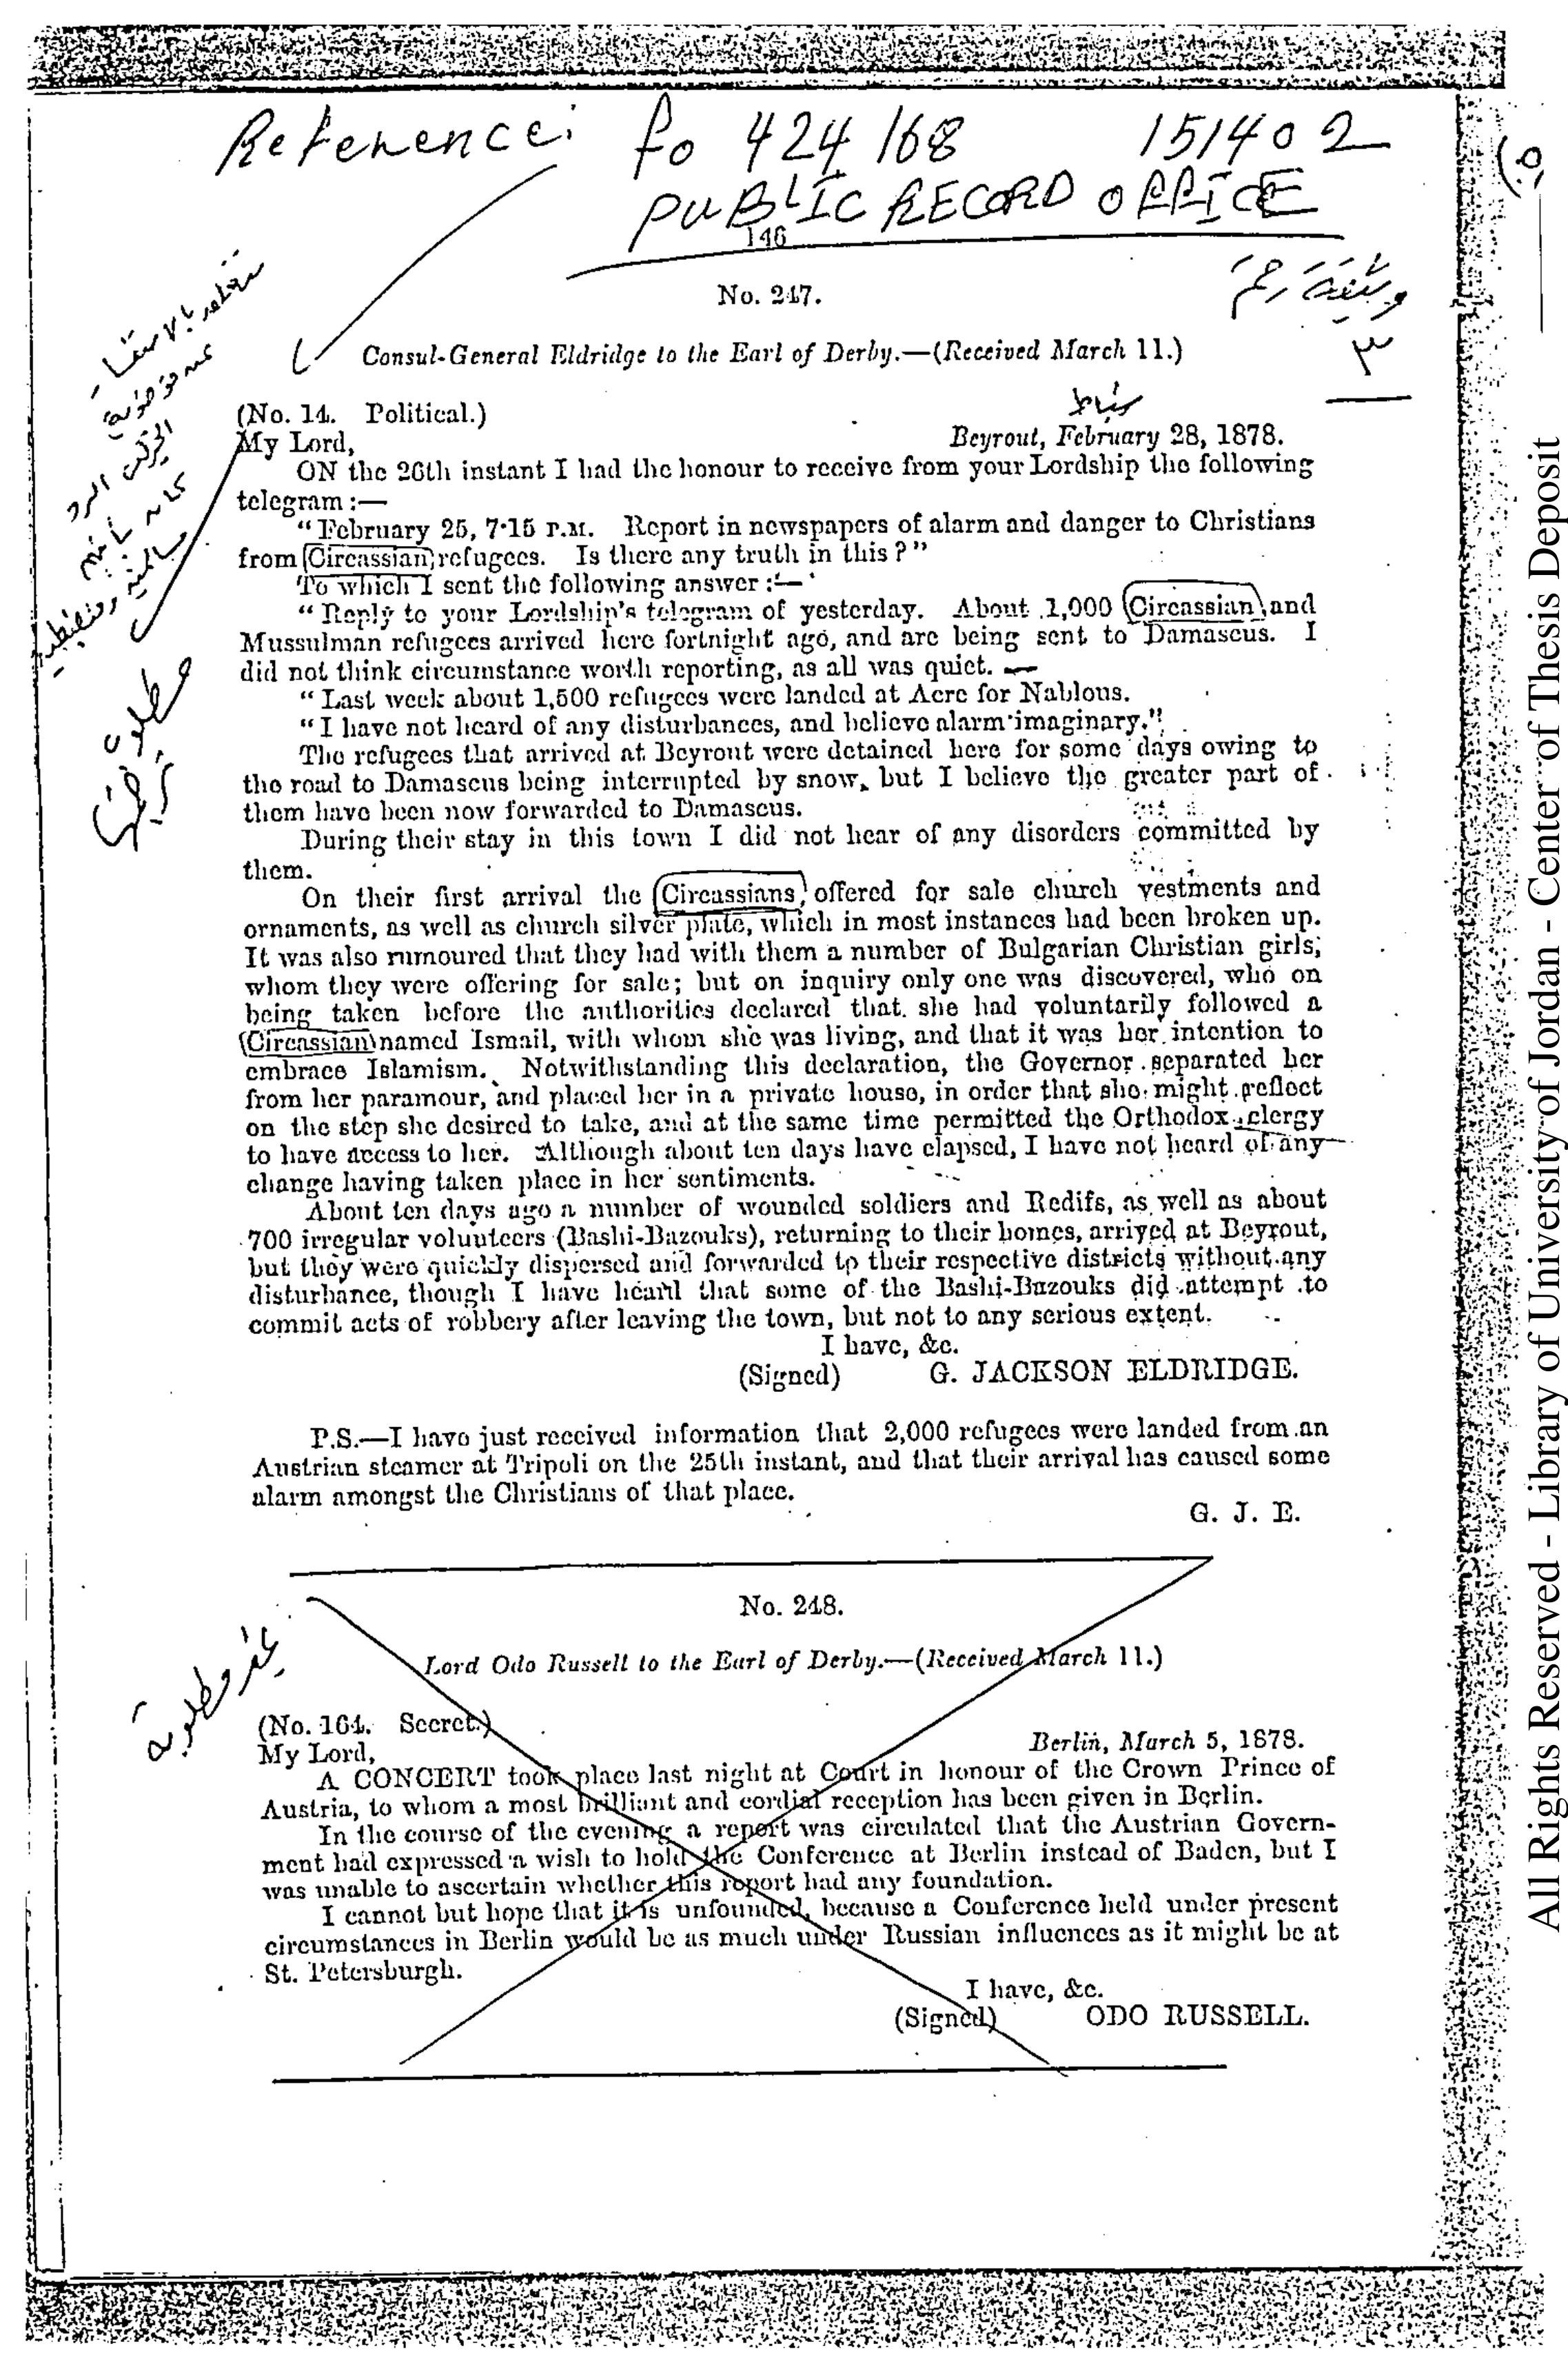 Reference: fo 424/68 151402
PUBLIC RECORD OFFICE
146
وثيقة رقم
٣
No. 247.
Consul-General Eldridge to the Earl of Derby.—(Received March 11.)
(No. 14. Political.)
شباط
My Lord, Beyrout, February 28, 1878.
ON the 26th instant I had the honour to receive from your Lordship the following
telegram:—
"February 25, 7·15 P.M. Report in newspapers of alarm and danger to Christians
from Circassian refugees. Is there any truth in this?"
To which I sent the following answer:—
"Reply to your Lordship's telegram of yesterday. About 1,000 Circassian and
Mussulman refugees arrived here fortnight ago, and are being sent to Damascus. I
did not think circumstance worth reporting, as all was quiet.
"Last week about 1,500 refugees were landed at Acre for Nablous.
"I have not heard of any disturbances, and believe alarm imaginary."
The refugees that arrived at Beyrout were detained here for some days owing to
the road to Damascus being interrupted by snow, but I believe the greater part of
them have been now forwarded to Damascus.
During their stay in this town I did not hear of any disorders committed by
them.
On their first arrival the Circassians offered for sale church vestments and
ornaments, as well as church silver plate, which in most instances had been broken up.
It was also rumoured that they had with them a number of Bulgarian Christian girls,
whom they were offering for sale; but on inquiry only one was discovered, who on
being taken before the authorities declared that she had voluntarily followed a
Circassian named Ismail, with whom she was living, and that it was her intention to
embrace Islamism. Notwithstanding this declaration, the Governor separated her
from her paramour, and placed her in a private house, in order that she might reflect
on the step she desired to take, and at the same time permitted the Orthodox clergy
to have access to her. Although about ten days have elapsed, I have not heard of any
change having taken place in her sentiments.
About ten days ago a number of wounded soldiers and Redifs, as well as about
700 irregular volunteers (Bashi-Bazouks), returning to their homes, arrived at Beyrout,
but they were quickly dispersed and forwarded to their respective districts without any
disturbance, though I have heard that some of the Bashi-Bazouks did attempt to
commit acts of robbery after leaving the town, but not to any serious extent.
I have, &c.
(Signed) G. JACKSON ELDRIDGE.
P.S.—I have just received information that 2,000 refugees were landed from an
Austrian steamer at Tripoli on the 25th instant, and that their arrival has caused some
alarm amongst the Christians of that place.
G. J. E.
No. 248.
Lord Odo Russell to the Earl of Derby.—(Received March 11.)
غير مطلوبة
(No. 164. Secret.)
My Lord, Berlin, March 5, 1878.
A CONCERT took place last night at Court in honour of the Crown Prince of
Austria, to whom a most brilliant and cordial reception has been given in Berlin.
In the course of the evening a report was circulated that the Austrian Govern-
ment had expressed a wish to hold the Conference at Berlin instead of Baden, but I
was unable to ascertain whether this report had any foundation.
I cannot but hope that it is unfounded, because a Conference held under present
circumstances in Berlin would be as much under Russian influences as it might be at
St. Petersburgh.
I have, &c.
(Signed) ODO RUSSELL.
All Rights Reserved - Library of University of Jordan - Center of Thesis Deposit